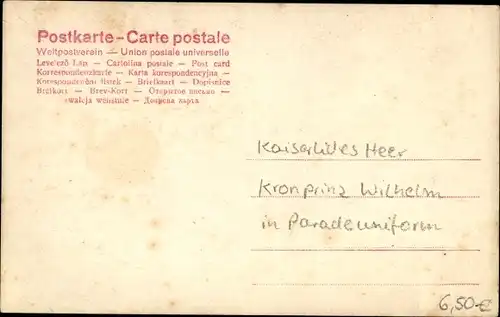 Postkarte – Carte postale
Weltpostverein — Union postale universelle
Levelező Lap — Cartolina postale — Post card
Korrespondenzkarte — Karta korespondencyjna —
Korespondenční lístek — Briefkaart — Dopisnice
Brefkort — Brev-Kort — Открытое письмо —
— Дописна карта
Kaiserliches Heer
Kronprinz Wilhelm
in Paradeuniform
6,50€